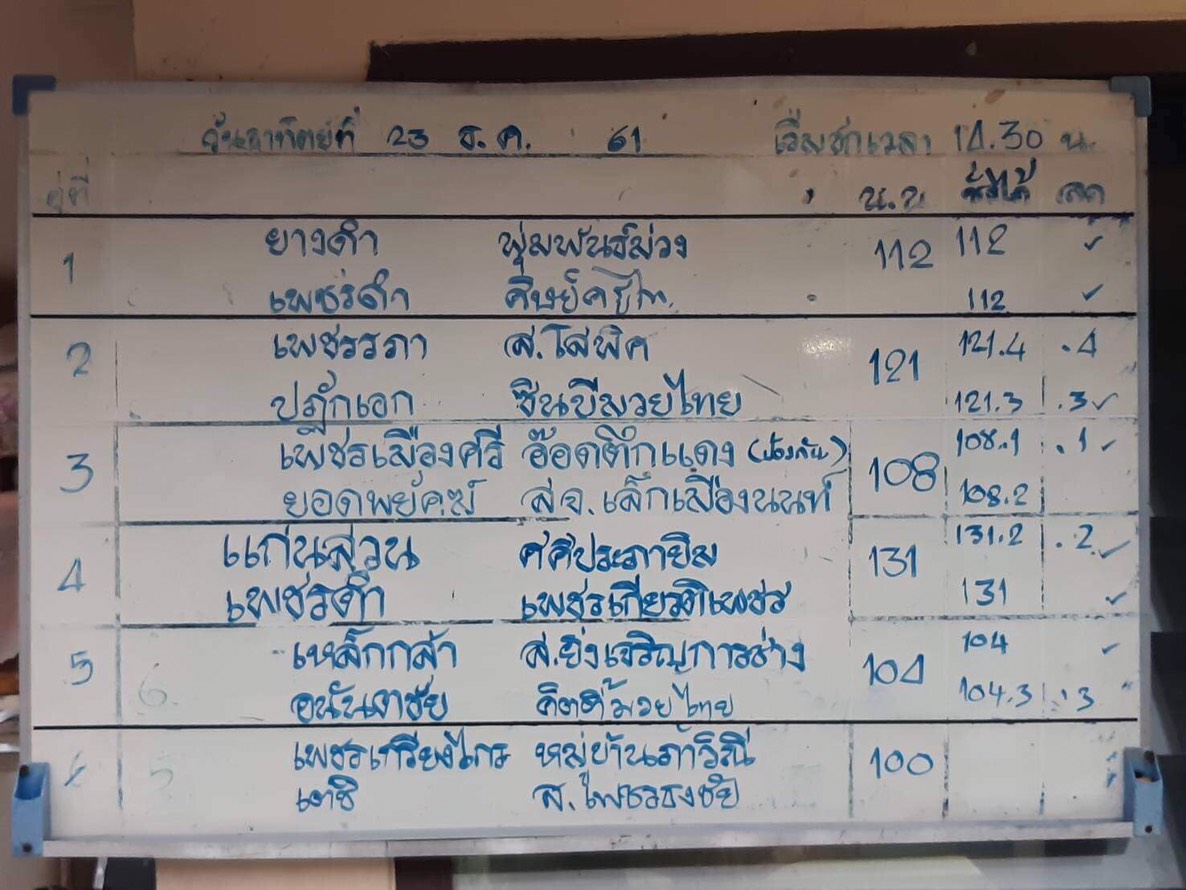 วันอาทิตย์ที่ 23 ธ.ค. 61 เริ่มชกเวลา 14.30 น.
คู่ที่ น.น. ชั่งได้ ลด
1 ยางดำ พุ่มพันธ์ม่วง 112 112 ✓
เพชรดำ 112 ✓
2 เพชรรภา ส.โสพิศ 121 121.4 .4
ปฏักเอก ซินบีมวยไทย 121.3 .3 ✓
3 เพชรเมืองศรี อ๊อดตึกแดง (ป้องกัน) 108 108.1 .1 ✓
ยอดพยัคฆ์ ส.จ.เล็กเมืองนนท์ 108.2
4 แก่นสวน ศศิประภายิม 131 131.2 .2 ✓
เพชรดำ เพชรเกียรติเพชร 131 ✓
5 เหล็กกล้า ส.ยิ่งเจริญการช่าง 104 104 ✓
อนันตชัย คิตตี้มวยไทย 104.3 .3
เพชรเกรียงไกร หมู่บ้านภาวิณี 100
เตชิ ส.เพชรธงชัย